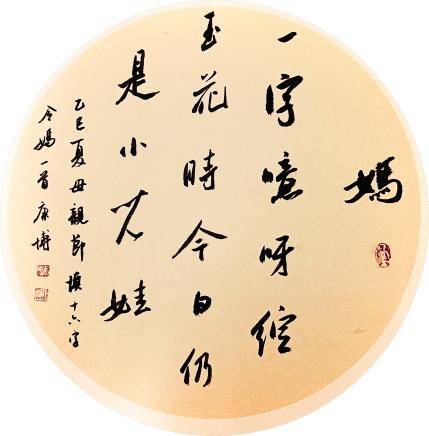 媽
一字噫呀綻
玉花時今日仍
是小兒娃
乙巳夏母親節填十六字
令媽一首康博